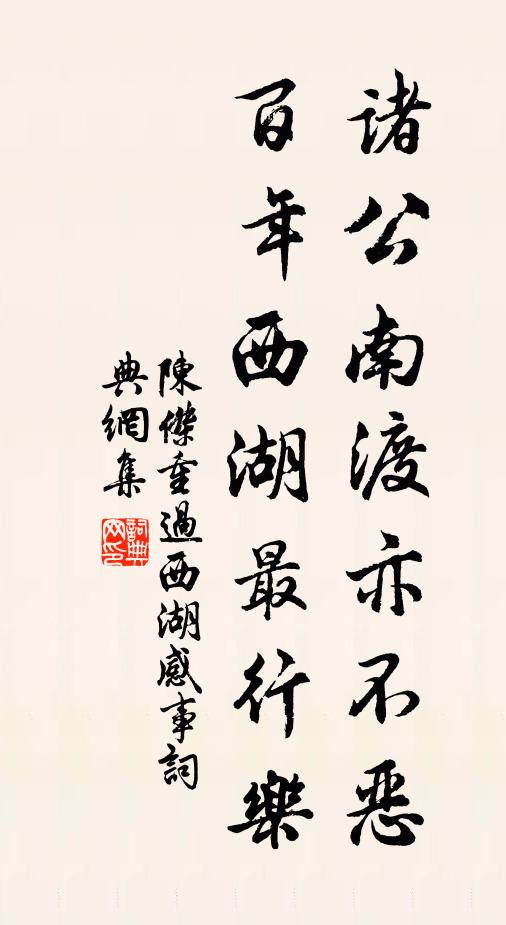 諸公南渡亦不惡
百年西湖最行樂
陳傑重過西湖感事詞
典網集
詞典網印